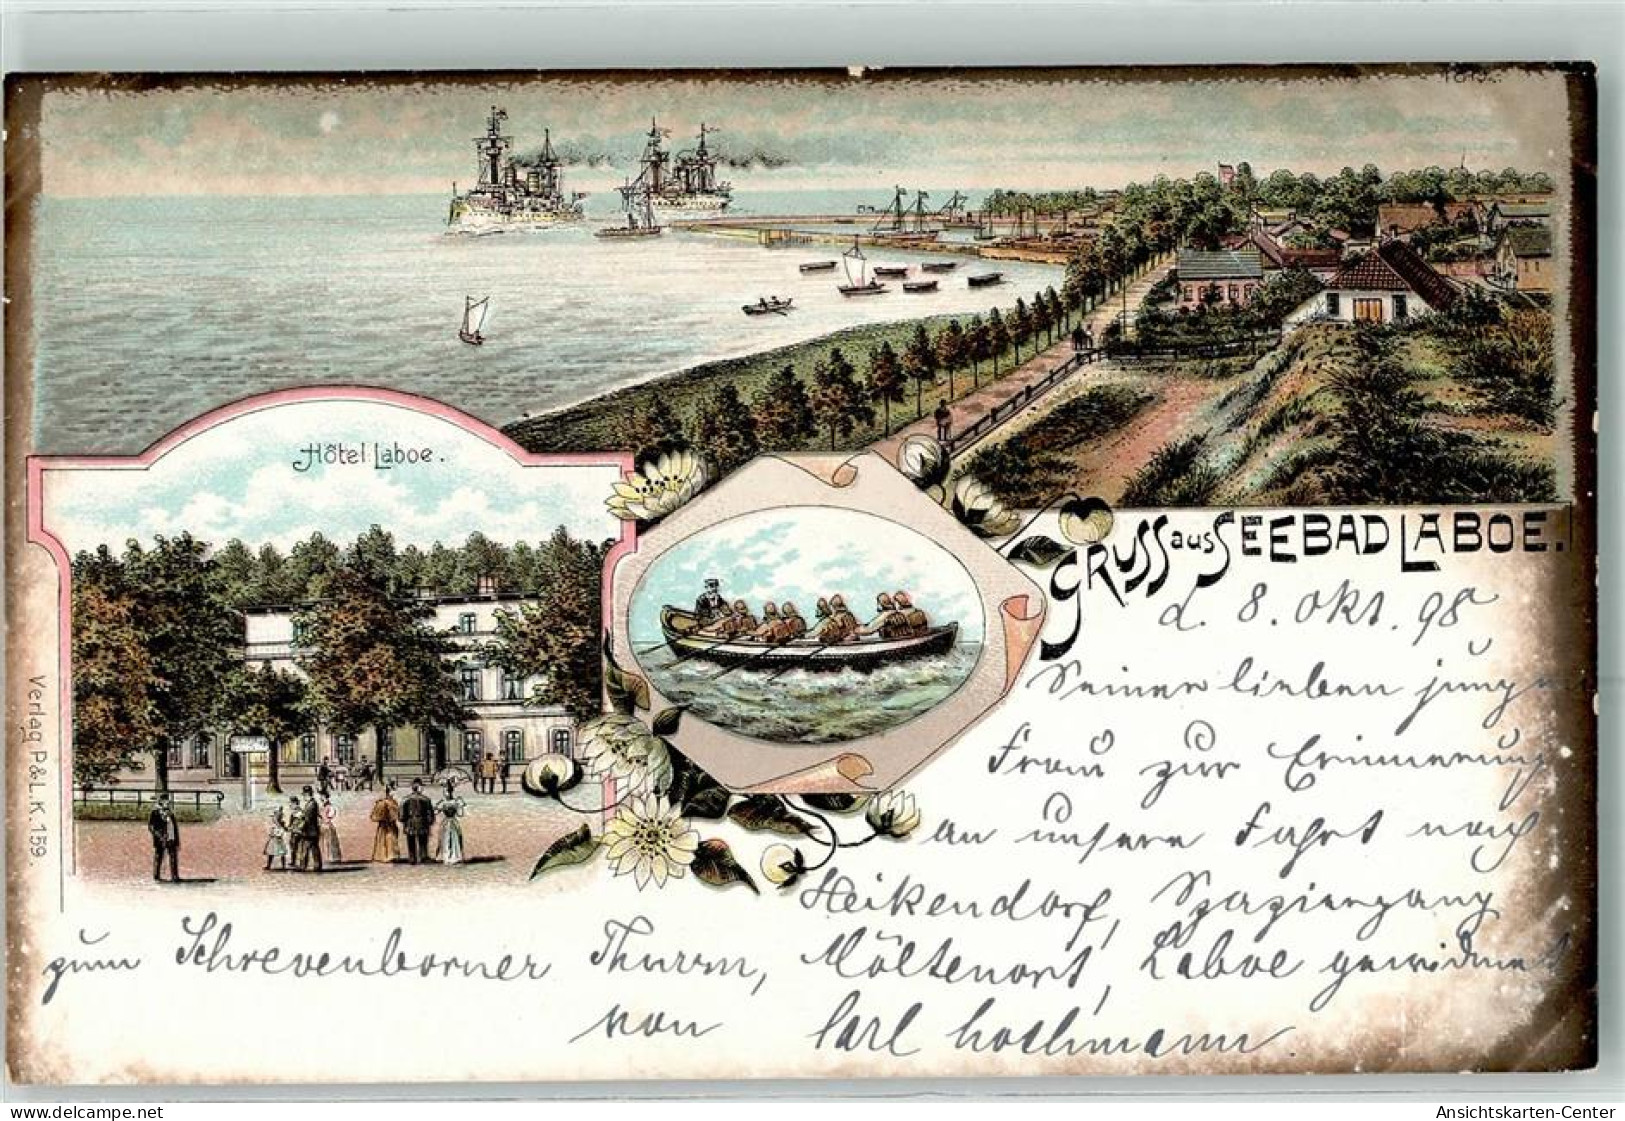 Hôtel Laboe.
GRUSS aus SEEBAD LABOE.
d. 8. Okt. 98
Seiner lieben jungen
Frau zur Erinnerung
an unsere Fahrt nach
Heikendorf, Spaziergang
zum Schrevenborner Thurm, Möltenort, Laboe gewidmet
von Carl Hothmann.
Verlag P.& L. K. 159.
Delcampe.net
Ansichtskarten-Center